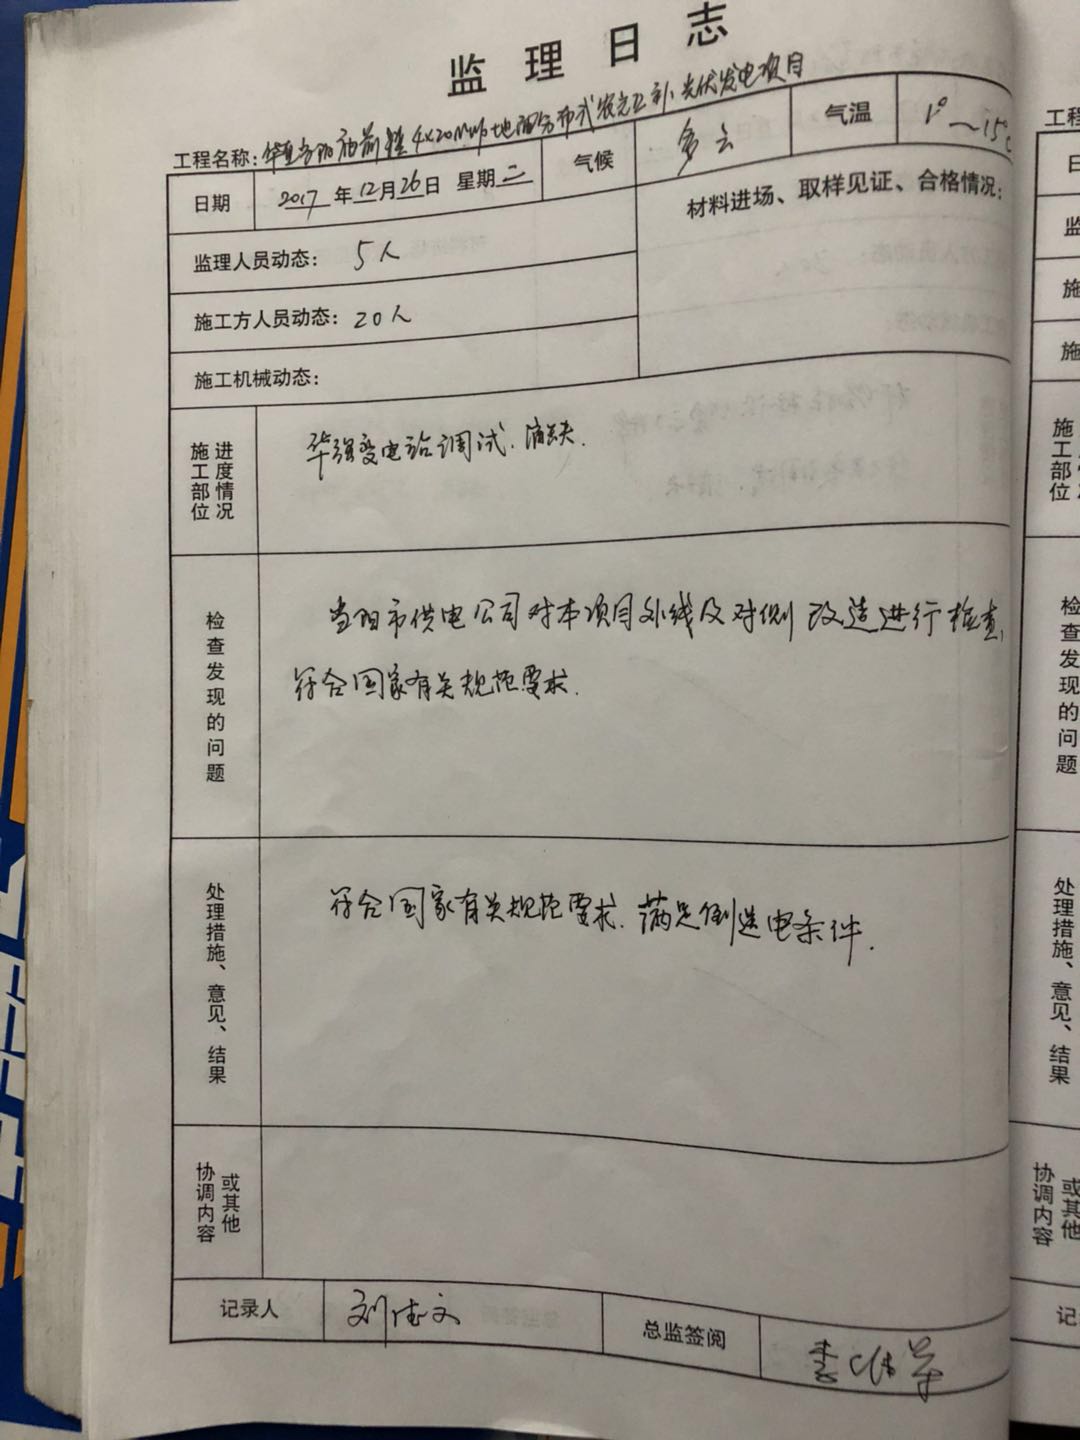 监理日志
工程名称: 4×20MWp地面分布式农光互补光伏发电项目
日期 2017年12月26日 星期二 气候 多云 气温 1°~15℃
监理人员动态: 5人
材料进场、取样见证、合格情况:
施工方人员动态: 20人
施工机械动态:
施工部位 进度情况
华强变电站调试.消缺.
检查发现的问题
当阳市供电公司对本项目外线及对侧改造进行检查,
符合国家有关规范要求.
处理措施、意见、结果
符合国家有关规范要求.满足倒送电条件.
协调内容 或其他
记录人 刘德文 总监签阅
工程
日
监
施
施
施工部位
检查发现的问题
处理措施、意见、结果
协调内容 或其他
记